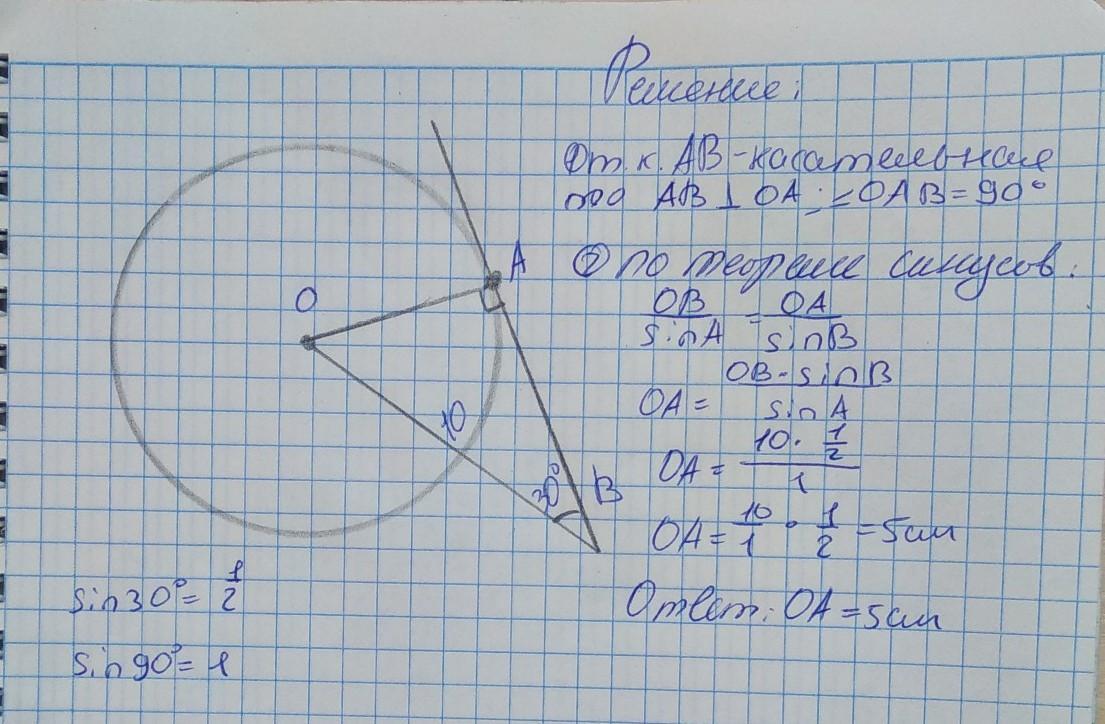 Решение:
① т.к. AB - касательная
то AB ⊥ OA; ∠OAB = 90°
② по теореме синусов:
OB/sinA = OA/sinB
OA = OB·sinB/sinA
OA = 10·1/2/1
OA = 10/1 · 1/2 = 5см
Ответ: OA = 5см
O
A
10
30°
B
sin30° = 1/2
sin90° = 1